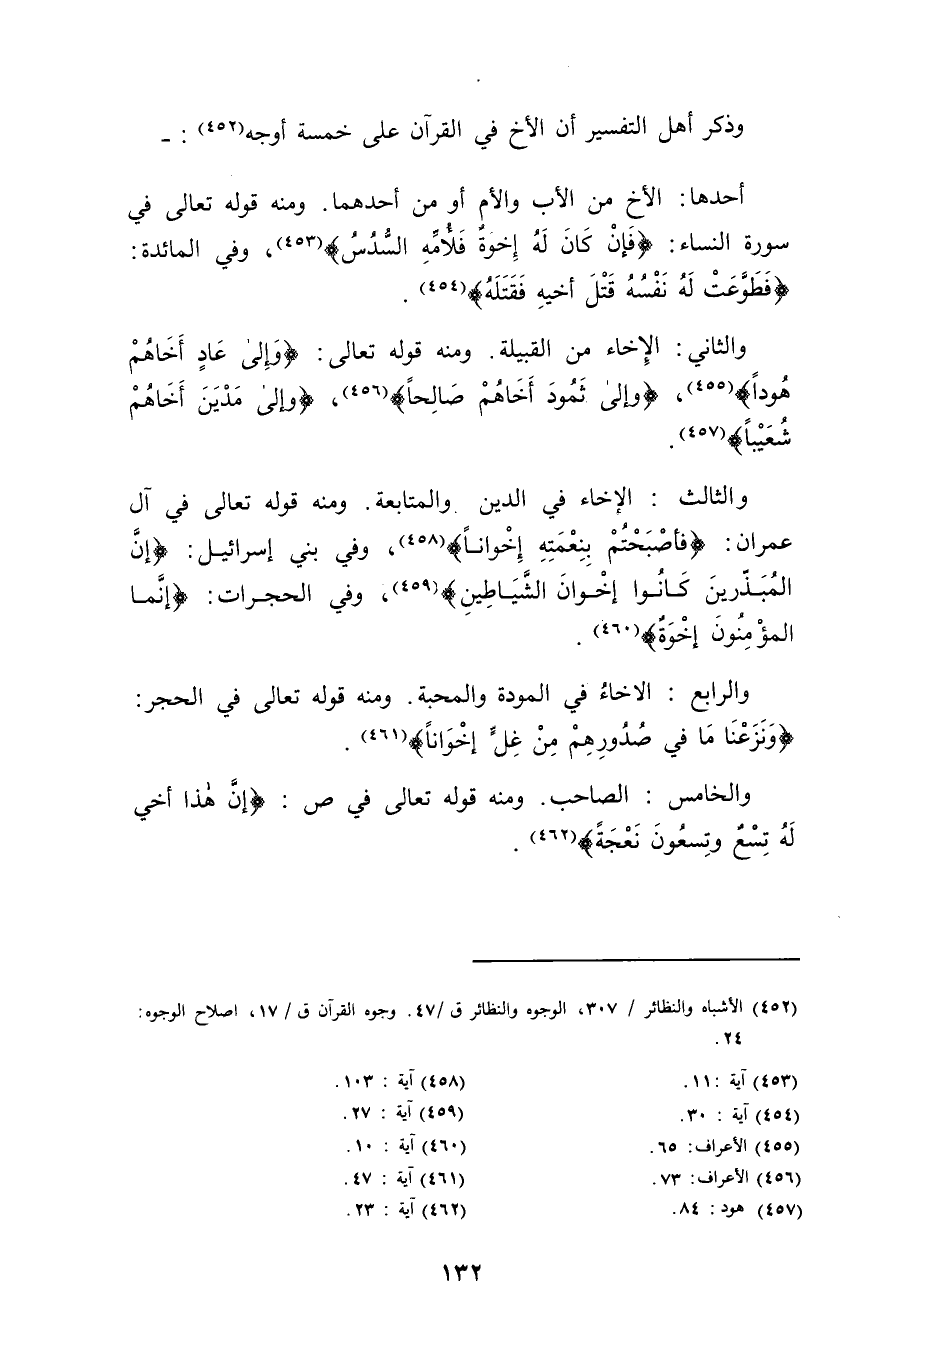 وذكر أهل التفسير أن الأخ في القرآن على خمسة أوجه(٤٥٢) : ـ
أحدها: الأخ من الأب والأم أو من أحدهما. ومنه قوله تعالى في
سورة النساء: ﴿فَإنْ كَانَ لَهُ إخوَةٌ فَلُأمِّهِ السُّدُسُ﴾(٤٥٣)، وفي المائدة:
﴿فَطَوَّعَتْ لَهُ نَفْسُهُ قَتْلَ أخيهِ فَقَتَلَهُ﴾(٤٥٤) .
والثاني: الإِخاء من القبيلة. ومنه قوله تعالى: ﴿وَإلىٰ عَادٍ أَخَاهُمْ
هُوداً﴾(٤٥٥)، ﴿وإلىٰ ثَمُودَ أَخَاهُمْ صَالِحاً﴾(٤٥٦)، ﴿وإلىٰ مَدْيَنَ أَخَاهُمْ
شُعَيْباً﴾(٤٥٧).
والثالث : الإخاء في الدين والمتابعة. ومنه قوله تعالى في آل
عمران: ﴿فأصْبَحْتُمْ بِنِعْمَتِهِ إخْواناً﴾(٤٥٨)، وفي بني إسرائيل: ﴿إنَّ
المُبَذّرينَ كَانُوا إخْوانَ الشَّيَاطِينِ﴾(٤٥٩)، وفي الحجرات: ﴿إنَّما
المؤْمِنُونَ إخْوَةٌ﴾(٤٦٠) .
والرابع : الاخاءُ في المودة والمحبة. ومنه قوله تعالى في الحجر:
﴿وَنَزَعْنَا مَا في صُدُورِهِمْ مِنْ غِلٍّ إخْوَاناً﴾(٤٦١) .
والخامس : الصاحب. ومنه قوله تعالى في ص : ﴿إنَّ هٰذا أخي
لَهُ تِسْعٌ وتِسعُونَ نَعْجَةً﴾(٤٦٢) .
(٤٥٢) الأشباه والنظائر / ٣٠٧، الوجوه والنظائر ق /٤٧. وجوه القرآن ق / ١٧، اصلاح الوجوه:
٢٤.
(٤٥٣) آية : ١١.
(٤٥٤) آية : ٣٠.
(٤٥٥) الأعراف: ٦٥.
(٤٥٦) الأعراف: ٧٣.
(٤٥٧) هود : ٨٤.
(٤٥٨) آية : ١٠٣.
(٤٥٩) آية : ٢٧.
(٤٦٠) آية : ١٠.
(٤٦١) آية : ٤٧.
(٤٦٢) آية : ٢٣.
١٣٢